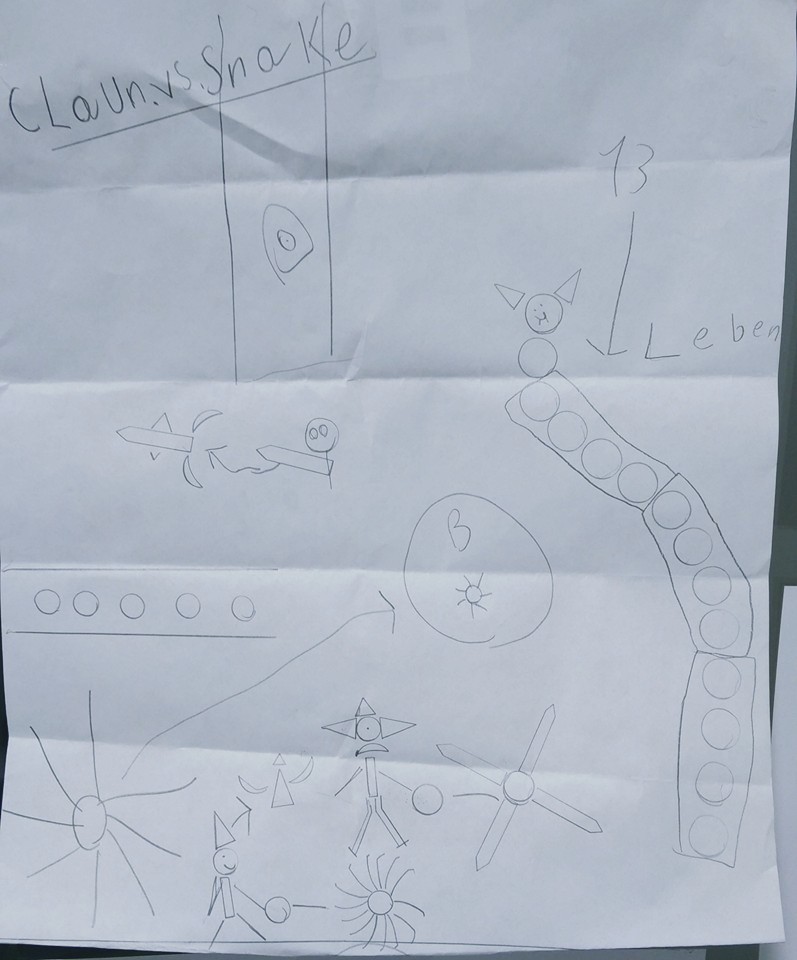 CLaUn.vs.Snake
13
Leben
B